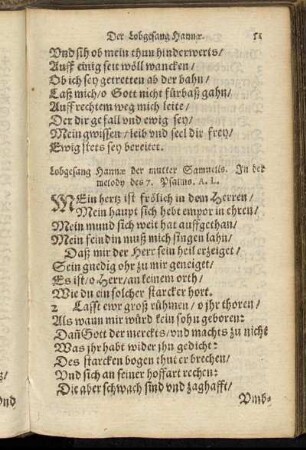 Der Lobgesang Hannæ. 51
Vnd sih ob mein thun hinderwerts/
Auff einig seit wöll wancken/
Ob ich sey getretten ab der bahn/
Laß mich/ o Gott nicht fürbaß gahn/
Auff rechtem weg mich leite/
Der dir gefall vnd ewig sey/
Mein gwissen/ leib vnd seel dir frey/
Ewig stets sey bereitet.
Lobgesang Hannæ der mutter Samuelis. In der
melody des 7. Psalms. A. L.
MEin hertz ist frölich in dem Herren/
Mein haupt sich hebt empor in ehren/
Mein mund sich weit hat auffgethan/
Mein feindin muß mich singen lahn/
Daß mir der Herr sein heil erzeiget/
Sein gnedig ohr zu mir geneiget/
Es ist/ o Herr/ an keinem orth/
Wie du ein solcher starcker hort.
2 Lasst ewr groß rühmen/ o jhr thoren/
Als wann mir würd kein sohn geboren:
Dañ Gott der merckts/ vnd machts zu nicht
Was jhr habt wider jhn gedicht:
Des starcken bogen thut er brechen/
Vnd sich an seiner hoffart rechen:
Die aber schwach sind vnd zaghafft/
Vmb-